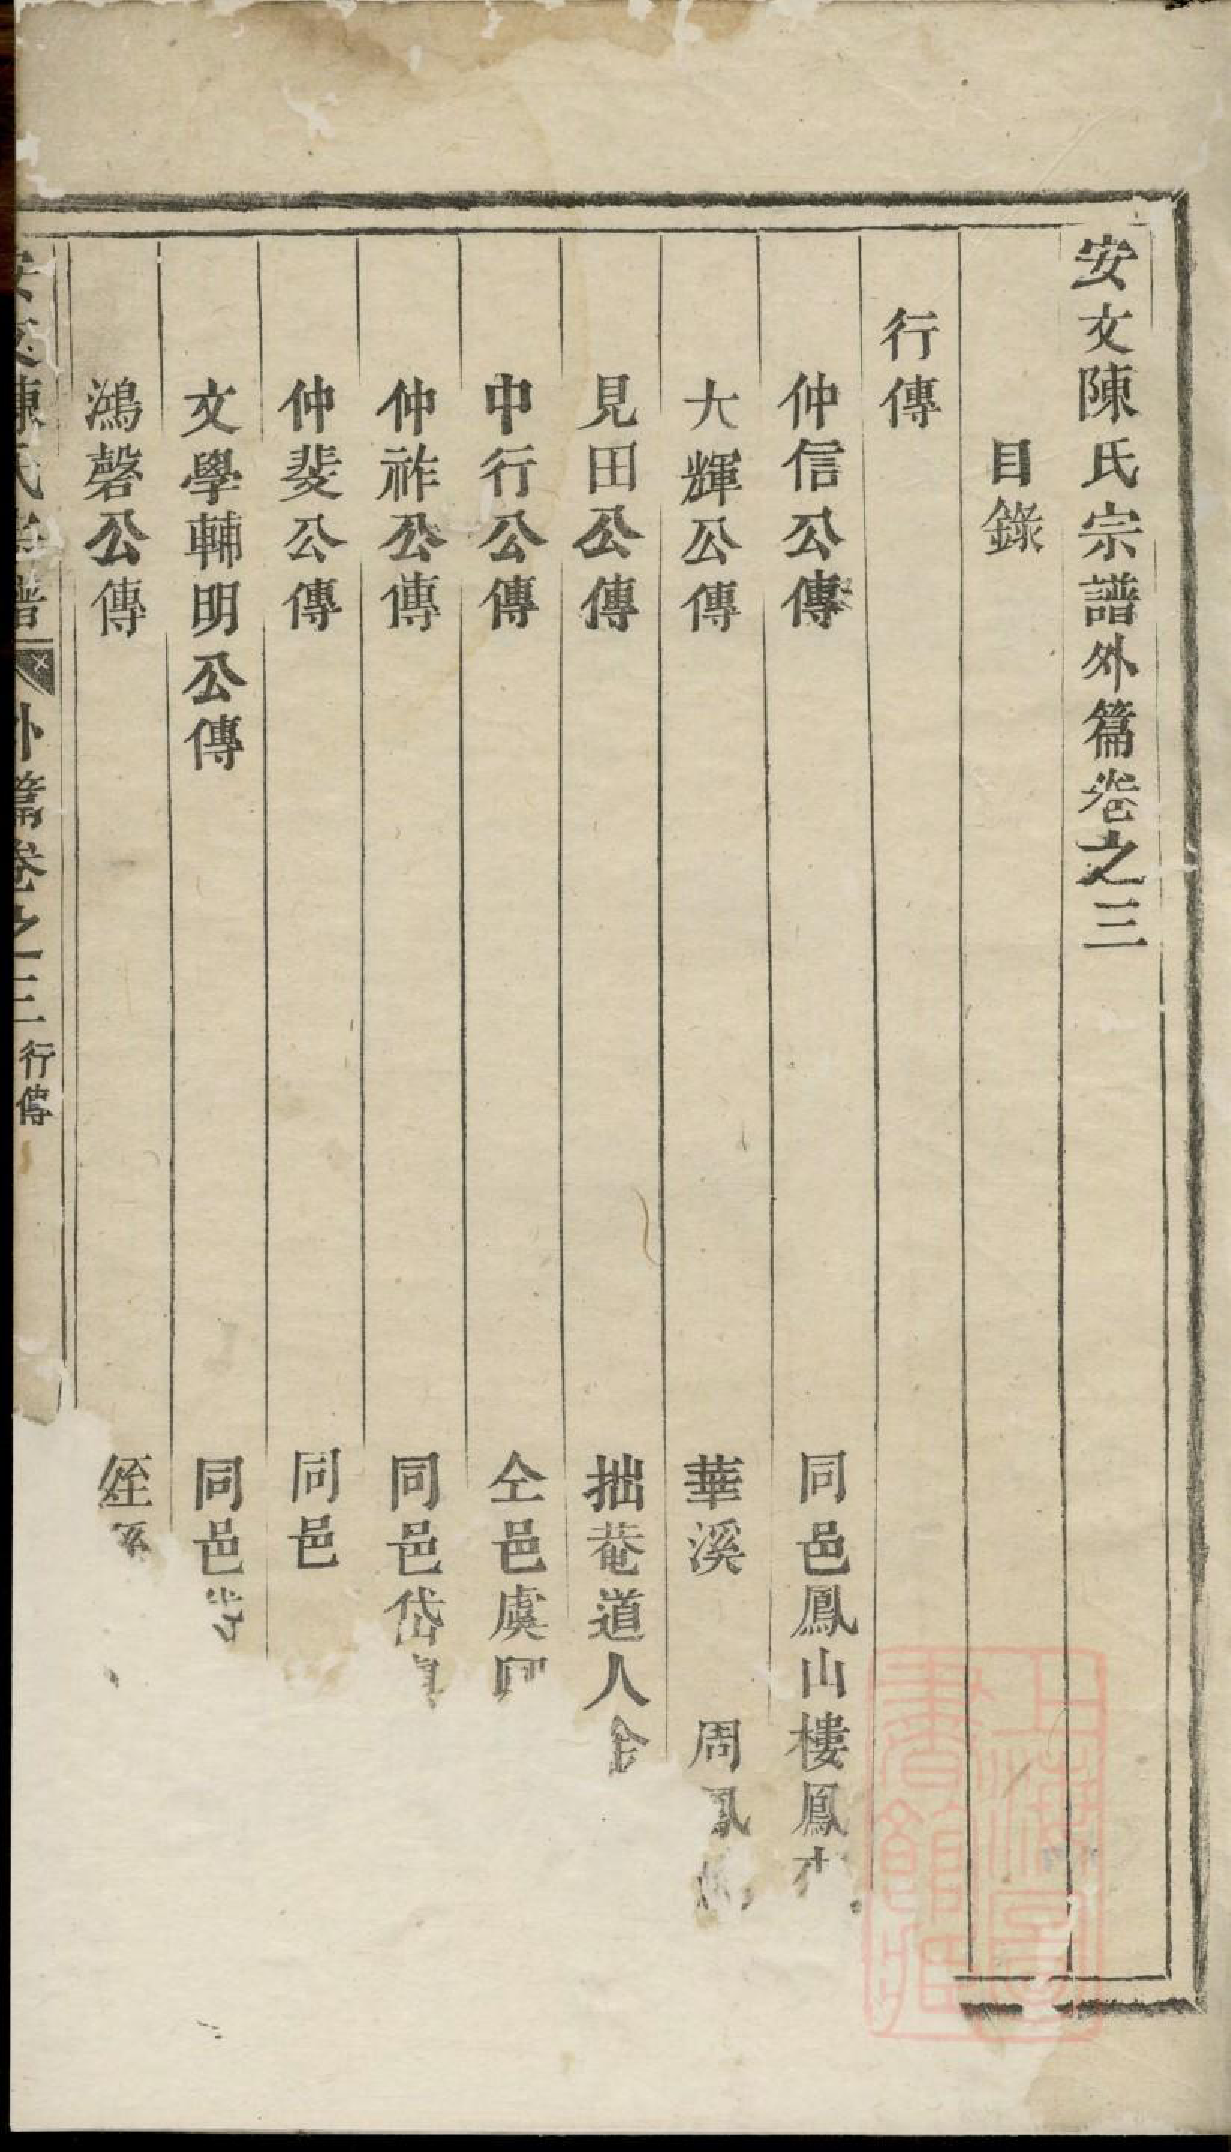 安文陳氏宗譜外篇卷之三
目錄
行傳
仲信公傳 同邑鳳山樓鳳
大輝公傳 華溪 周鳳
見田公傳 拙菴道人金
中行公傳 仝邑虞
仲祚公傳 同邑岱
仲斐公傳 同邑
文學輔明公傳 同邑
鴻磬公傳 姪
安文陳氏宗譜 外篇卷之三 行傳
上海圖書館藏